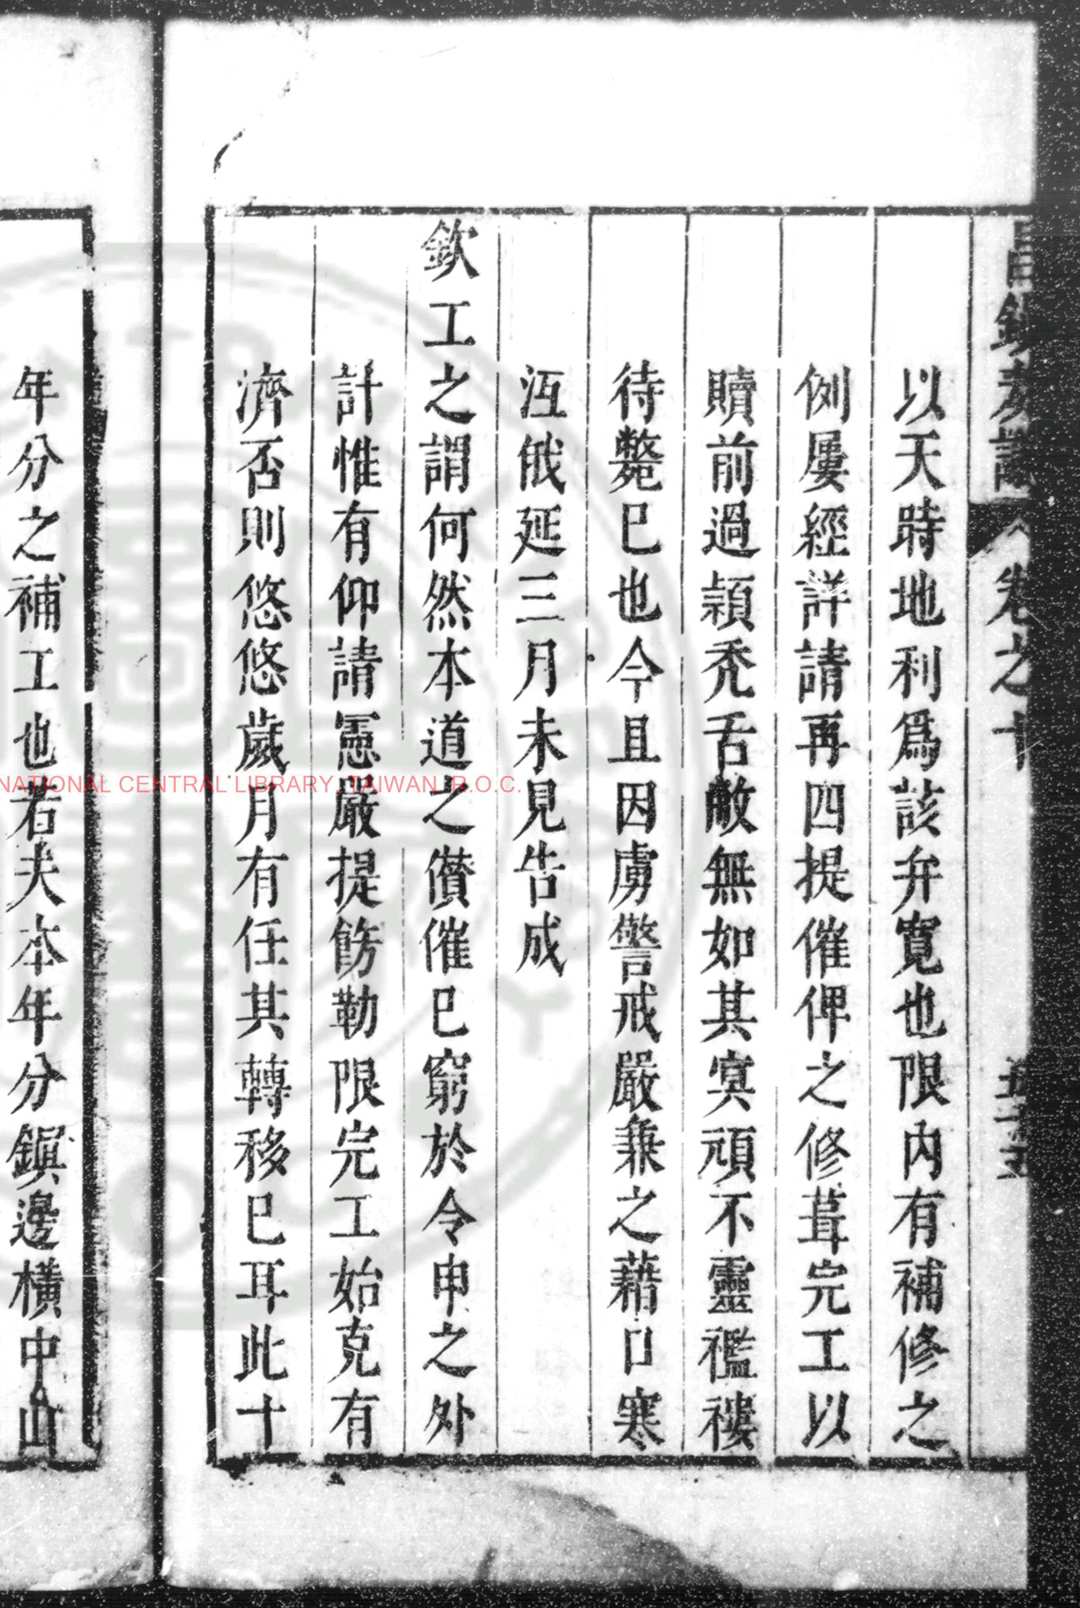 卷之十
以天時地利爲該弁寬也限內有補修之
例屢經詳請再四提催俾之修葺完工以
贖前過穎禿舌敝無如其冥頑不靈襤褸
待斃巳也今且因虜警戒嚴兼之藉口寒
冱俄延三月未見告成
欽工之謂何然本道之儹催巳窮於令申之外
計惟有仰請憲嚴提飭勒限完工始克有
濟否則悠悠歲月有任其轉移巳耳此十
年分之補工也若夫本年分鎮邊橫中山
NATIONAL CENTRAL LIBRARY, TAIWAN, R.O.C.